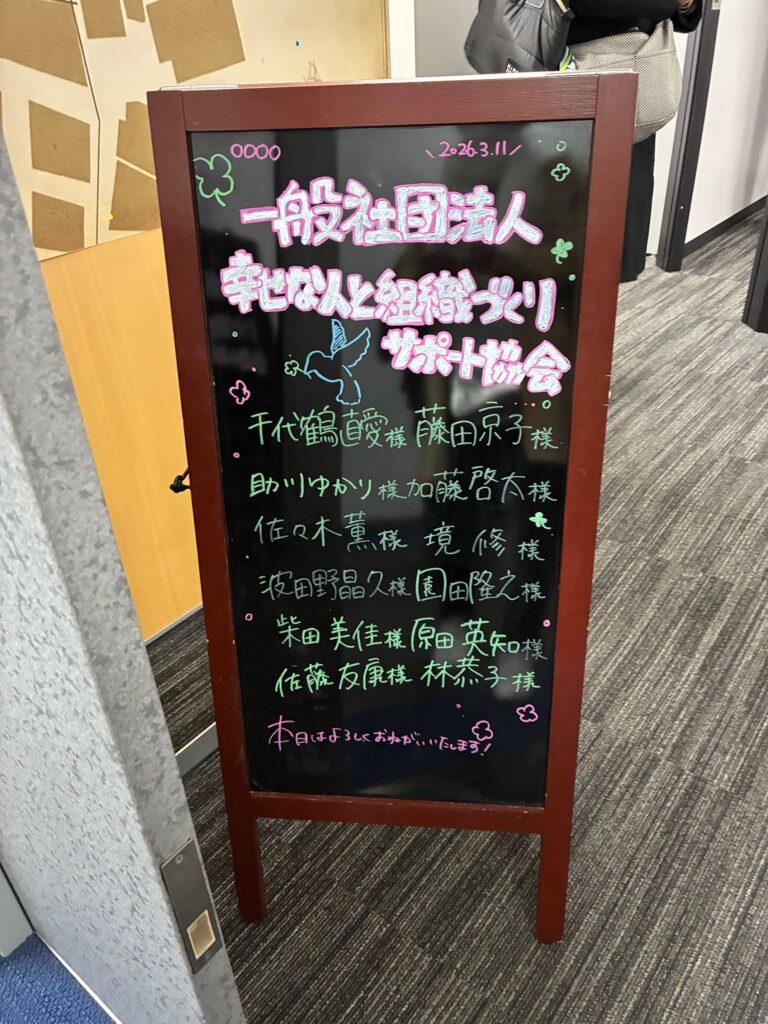 2026.3.11
一般社団法人
幸せな人と組織づくり
サポート協会
千代鶴直愛様 藤田京子様
助川ゆかり様 加藤啓太様
佐々木薫様 境修様
波田野晶久様 園田隆之様
柴田美佳様 原田英知様
佐藤友康様 林恭子様
本日はよろしくおねがいいたします!